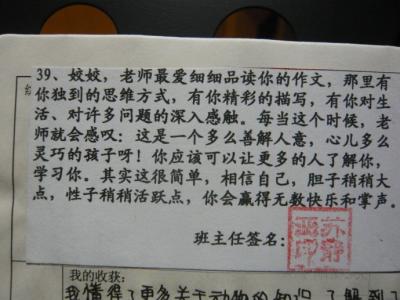 39、姣姣，老师最爱细细品读你的作文，那里有
你独到的思维方式，有你精彩的描写，有你对生
活、对许多问题的深入感触。每当这个时候，老
师就会感叹：这是一个多么善解人意，心儿多么
灵巧的孩子呀！你应该可以让更多的人了解你，
学习你。其实这很简单，相信自己，胆子稍稍大
点，性子稍稍活跃点，你会赢得无数快乐和掌声。
班主任签名：
我的收获：
我懂得了更多关于动物的知识，了解到了